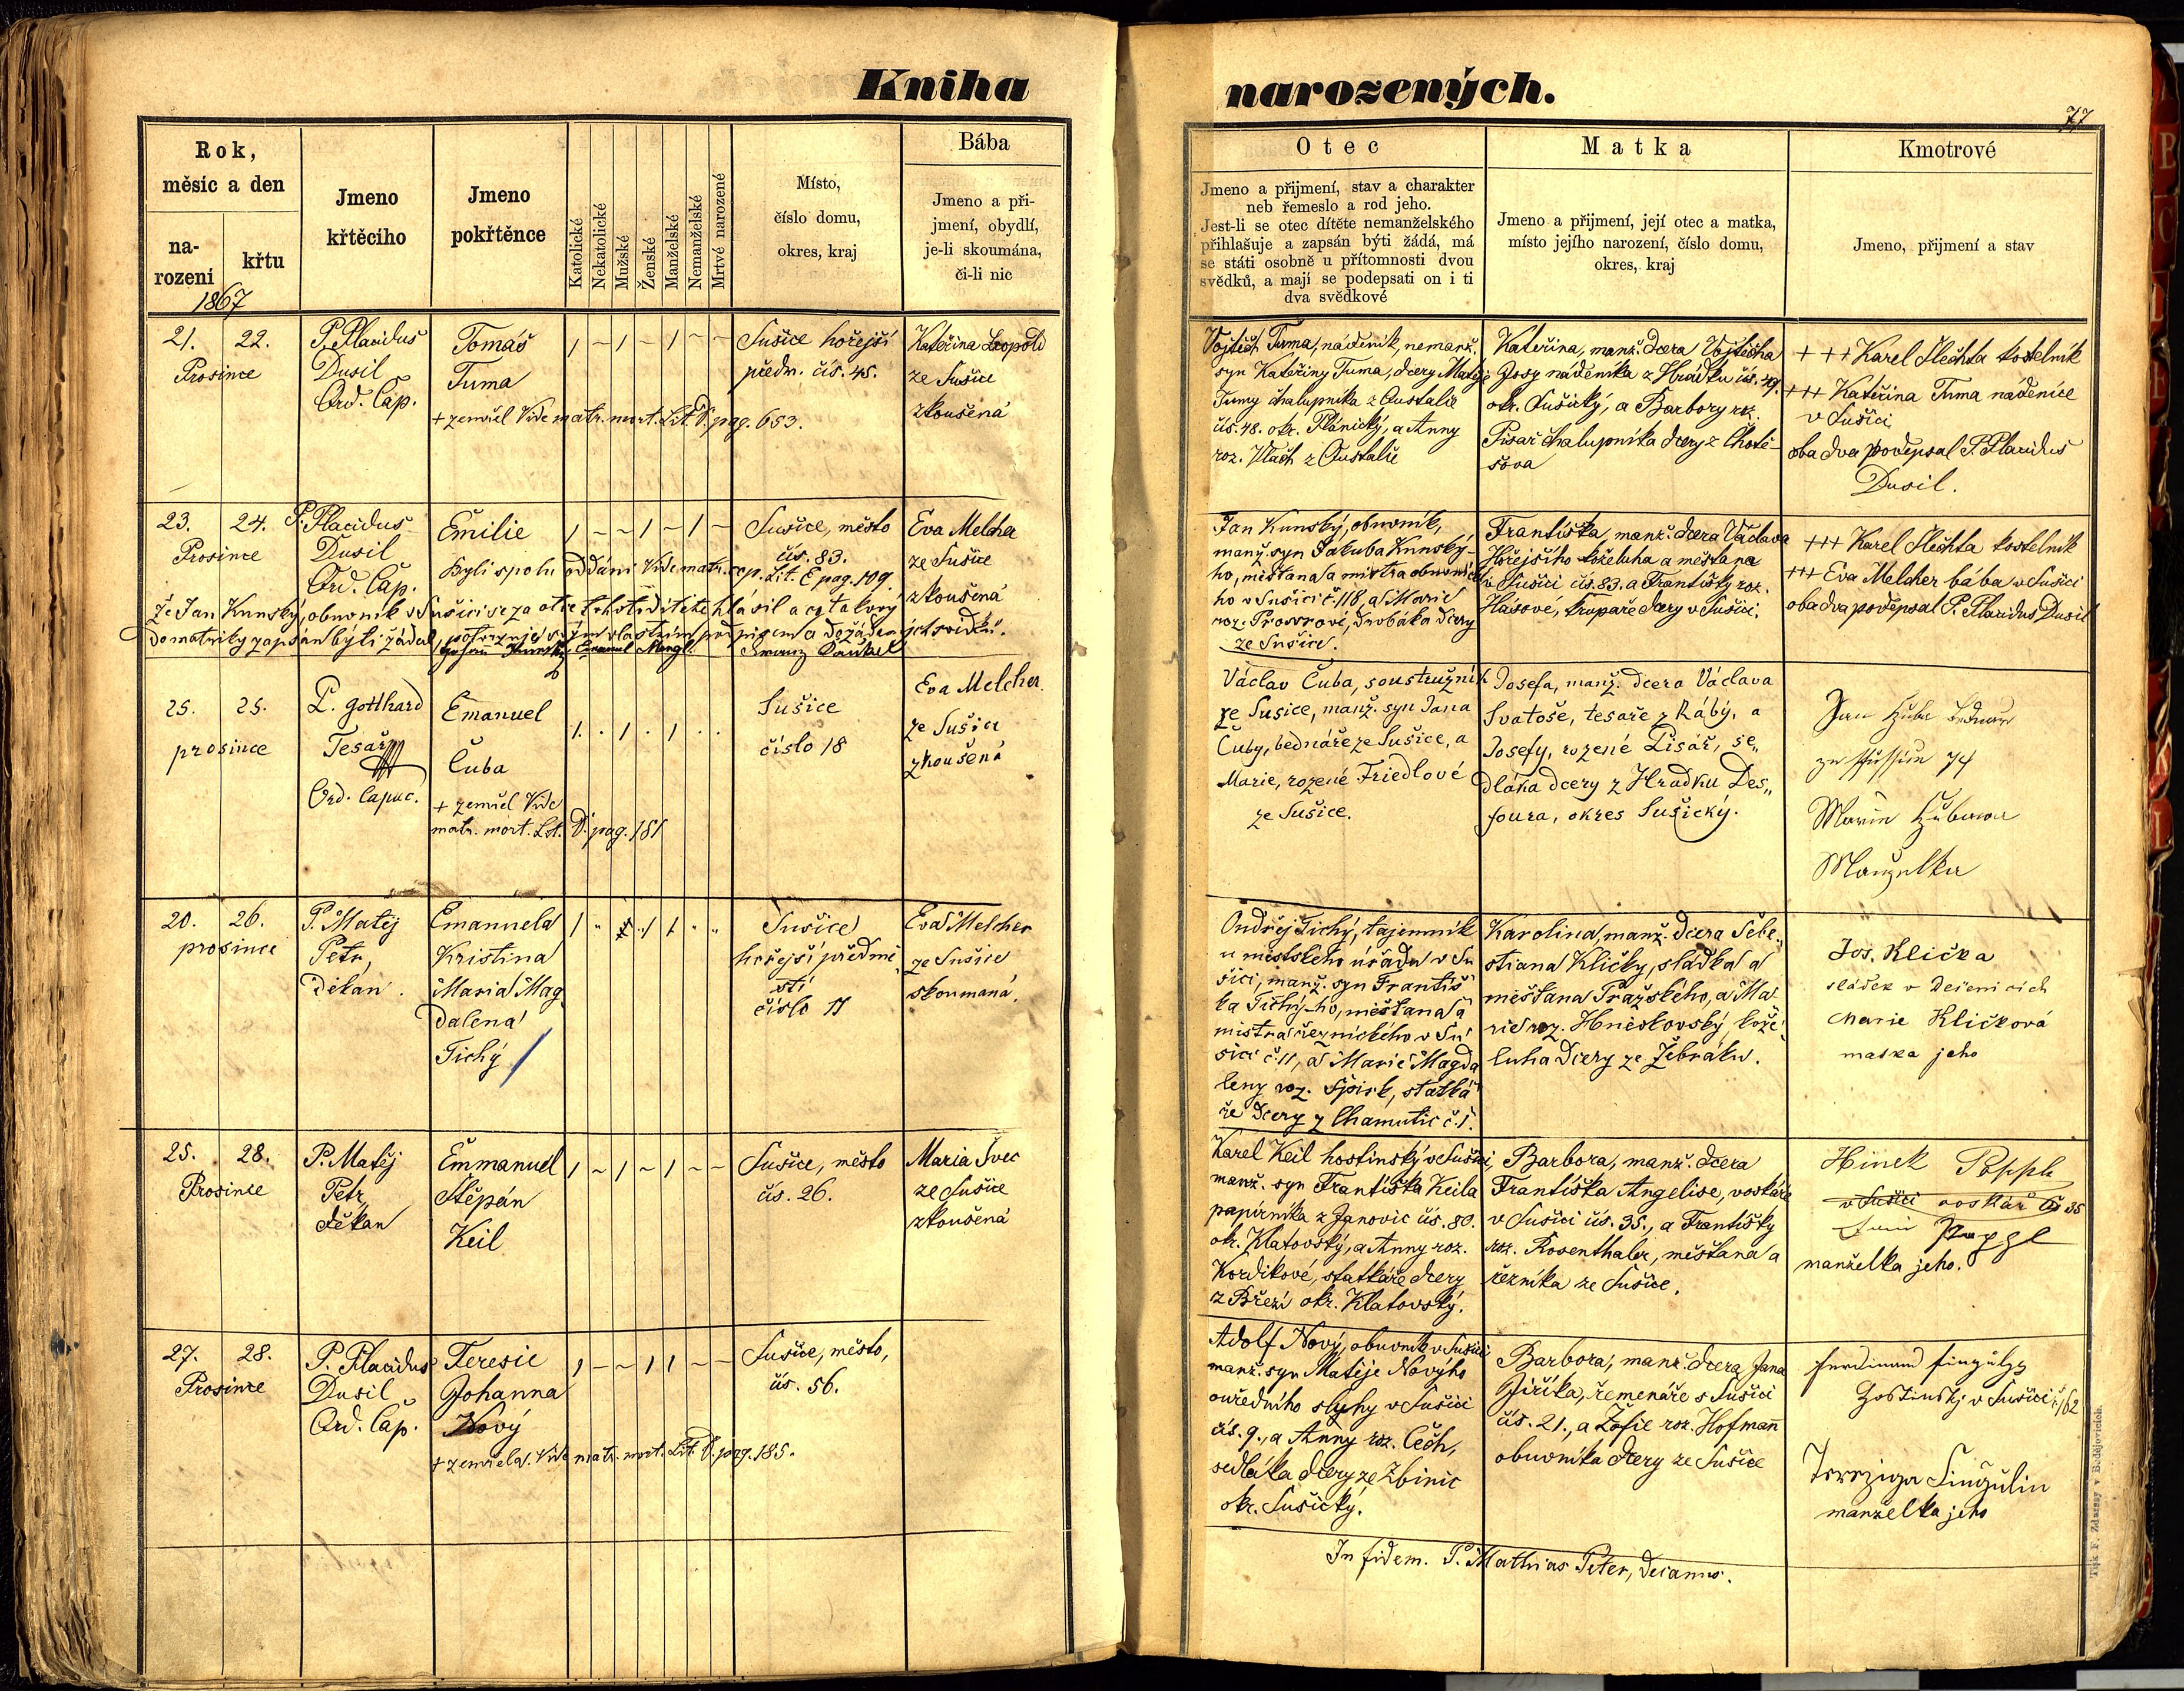 Kniha narozených.
77
Rok,
měsíc a den
na-
rození
křtu
1867
Jmeno
křtěcího
Jmeno
pokřtěnce
Katolické
Nekatolické
Mužské
Ženské
Manželské
Nemanželské
Mrtvé narozené
Místo,
číslo domu,
okres, kraj
Bába
Jmeno a při-
jmení, obydlí,
je-li skoumána,
či-li nic
Otec
Jmeno a přijmení, stav a charakter
neb řemeslo a rod jeho.
Jest-li se otec dítěte nemanželského
přihlašuje a zapsán býti žádá, má
se státi osobně u přítomnosti dvou
svědků, a mají se podepsati on i ti
dva svědkové
Matka
Jmeno a přijmení, její otec a matka,
místo jejího narození, číslo domu,
okres, kraj
Kmotrové
Jmeno, přijmení a stav
21. 22.
Prosince
P. Placidus
Dusil
Ord. Cap.
Tomáš
Tuma
+ zemřel Vide matr. mort. Lit. D. pag. 653.
Sušice hořejší
předm. čís. 45.
Kateřina Leopold
ze Sušice
zkoušená
Vojtěch Tuma, nádeník, nemanž.
syn Kateřiny Tuma, dcery Matěje
Tumy chalupníka z Oustalič
čís. 48. okr. Plánický, a Anny
roz. Vlach z Oustalič
Kateřina, manž. dcera Vojtěcha
Josy nádeníka z Hrádku čís. 49.
okr. Sušický, a Barbory roz.
Pisař chalupníka dcery z Chotě-
šova
+++ Karel Šlechta kostelník
+++ Kateřina Tuma nádenice
v Sušici
oba dva podepsal P. Placidus
Dusil.
23. 24.
Prosince
P. Placidus
Dusil
Ord. Cap.
Emilie
Byli spolu oddáni Vide matr. cop. Lit. E pag. 109.
Že Jan Kunský, obuvník v Sušici se za otce tohoto dítěte hlásil a co takový
do matriky zapsán býti žádal, potvrzuje svým vlastním podpisem a dožádaných svědků.
Johann Kunský Emanuel Mengl. Franz Daukel
Sušice, město
čís. 83.
Eva Melcher
ze Sušice
zkoušená
Jan Kunský, obuvník,
manž. syn Jakuba Kunský-
ho, měšťana a mistra obuvnické
ho v Sušici č. 118 a Marie
roz. Drobáka dcery
ze Sušice.
Františka, manž. dcera Václava
Hořejšího koželuha a měšťana
v Sušici čís. 83. a Františky roz.
Hásové, krupaře dcery v Sušici.
+++ Karel Šlechta kostelník
+++ Eva Melcher bába v Sušici
oba dva podepsal P. Placidus Dusil
25. 25.
prosince
P. Gotthard
Tesař
Ord. Capuc.
Emanuel
Čuba
+ zemřel Vide
matr. mort. Lit. D. pag. 181
Sušice
číslo 18
Eva Melcher.
ze Sušice
zkoušená
Václav Čuba, soustružník
ze Sušice, manž. syn Jana
Čuby, bednáře ze Sušice, a
Marie, rozené Friedlové
ze Sušice.
Josefa, manž. dcera Václava
Svatoše, tesaře z Ráby, a
Josefy, rozené Pisář, se„
dláka dcery z Hradku Des„
foura, okres Sušický.
Jan Čuba
74
Marie
Manželka
20. 26.
prosince
P. Matěj
Petr,
děkan.
Emanuela
Kristina
Maria Mag
dalena
Tichý
Sušice
hořejší předmě
stí
číslo 11
Eva Melcher
ze Sušice
skoumaná.
Ondřej Tichý, tajemník
u městského úřadu v Su
šici, manž. syn Františ
ka Tichý-ho, měšťana a
mistra řeznického v Su
šici č. 11, a Marie Magda
leny roz. Špirk, statká
ře dcery z Chamutic č. 1.
Karolina, manž. dcera Šebe„
stiana Kličky, sládka a
měšťana Pražského, a Ma
rie roz. Hněvkovský, kože
luha dcery ze Žebráku.
Jos. Klička
sládek v Dešenicích
Marie Kličková
matka jeho
25. 28.
Prosince
P. Matěj
Petr,
děkan
Emmanuel
Štěpán
Keil
Sušice, město
čís. 26.
Maria Švec
ze Sušice
zkoušená
Karel Keil hostinský v Sušici,
manž. syn Františka Keila
papírníka z Janovic čís. 80.
okr. Klatovský, a Anny roz.
Kordikové, statkáře dcery
z Březí okr. Klatovský.
Barbora, manž. dcera
Františka Angelise, voskáře
v Sušici čís. 35., a Františky
roz. Rosenthaler, měšťana a
řezníka ze Sušice.
Hinek Poppl
v Sušici voskář Čs 35
Poppl
manželka jeho.
27. 28.
Prosince
P. Placidus
Dusil
Ord. Cap.
Teresie
Johanna
Nový
+ zemřela. Vide matr. mort. Lit. D. pag. 185.
Sušice, město,
čís. 56.
Adolf Nový, obuvník v Sušici
manž. syn Matěje Nového
ouředního sluhy v Sušici
čís. 9., a Anny roz. Čech,
sedláka dcery ze Zbinic
okr. Sušický.
Barbora, manž. dcera Jana
Jiříka, řemenáře s Sušici
čís. 21., a Žofie roz. Hofmann
obuvníka dcery ze Sušice
Ferdinand
Hostinský v Sušici č 162
manželka jeho
In fidem. P. Mathias Peter, Decanus.
Tisk F. Zdarssy v Budějovicích.